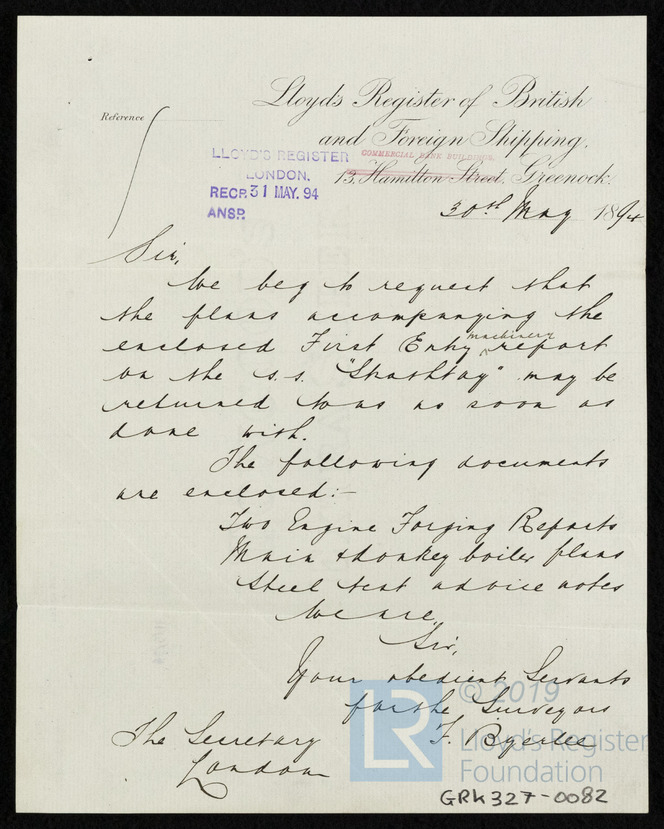 Lloyd's Register of British
and Foreign Shipping.
Reference
COMMERCIAL BANK BUILDINGS.
13, Hamilton Street, Greenock.
LLOYD'S REGISTER
LONDON.
RECD. 31 MAY. 94
ANSD.
30th May 1894
Sir,
We beg to request that
the plans accompanying the
enclosed First Entry machinery report
on the s.s. "Strathtay" may be
returned to us as soon as
done with.
The following documents
are enclosed:-
Two Engine Forging Reports
Main & donkey boiler plans
Steel test advice notes
We are,
Sir,
Your obedient Servants
for the Surveyors
F.
The Secretary
London
© 2019
LR
Lloyd's Register
Foundation
GRK327-0082